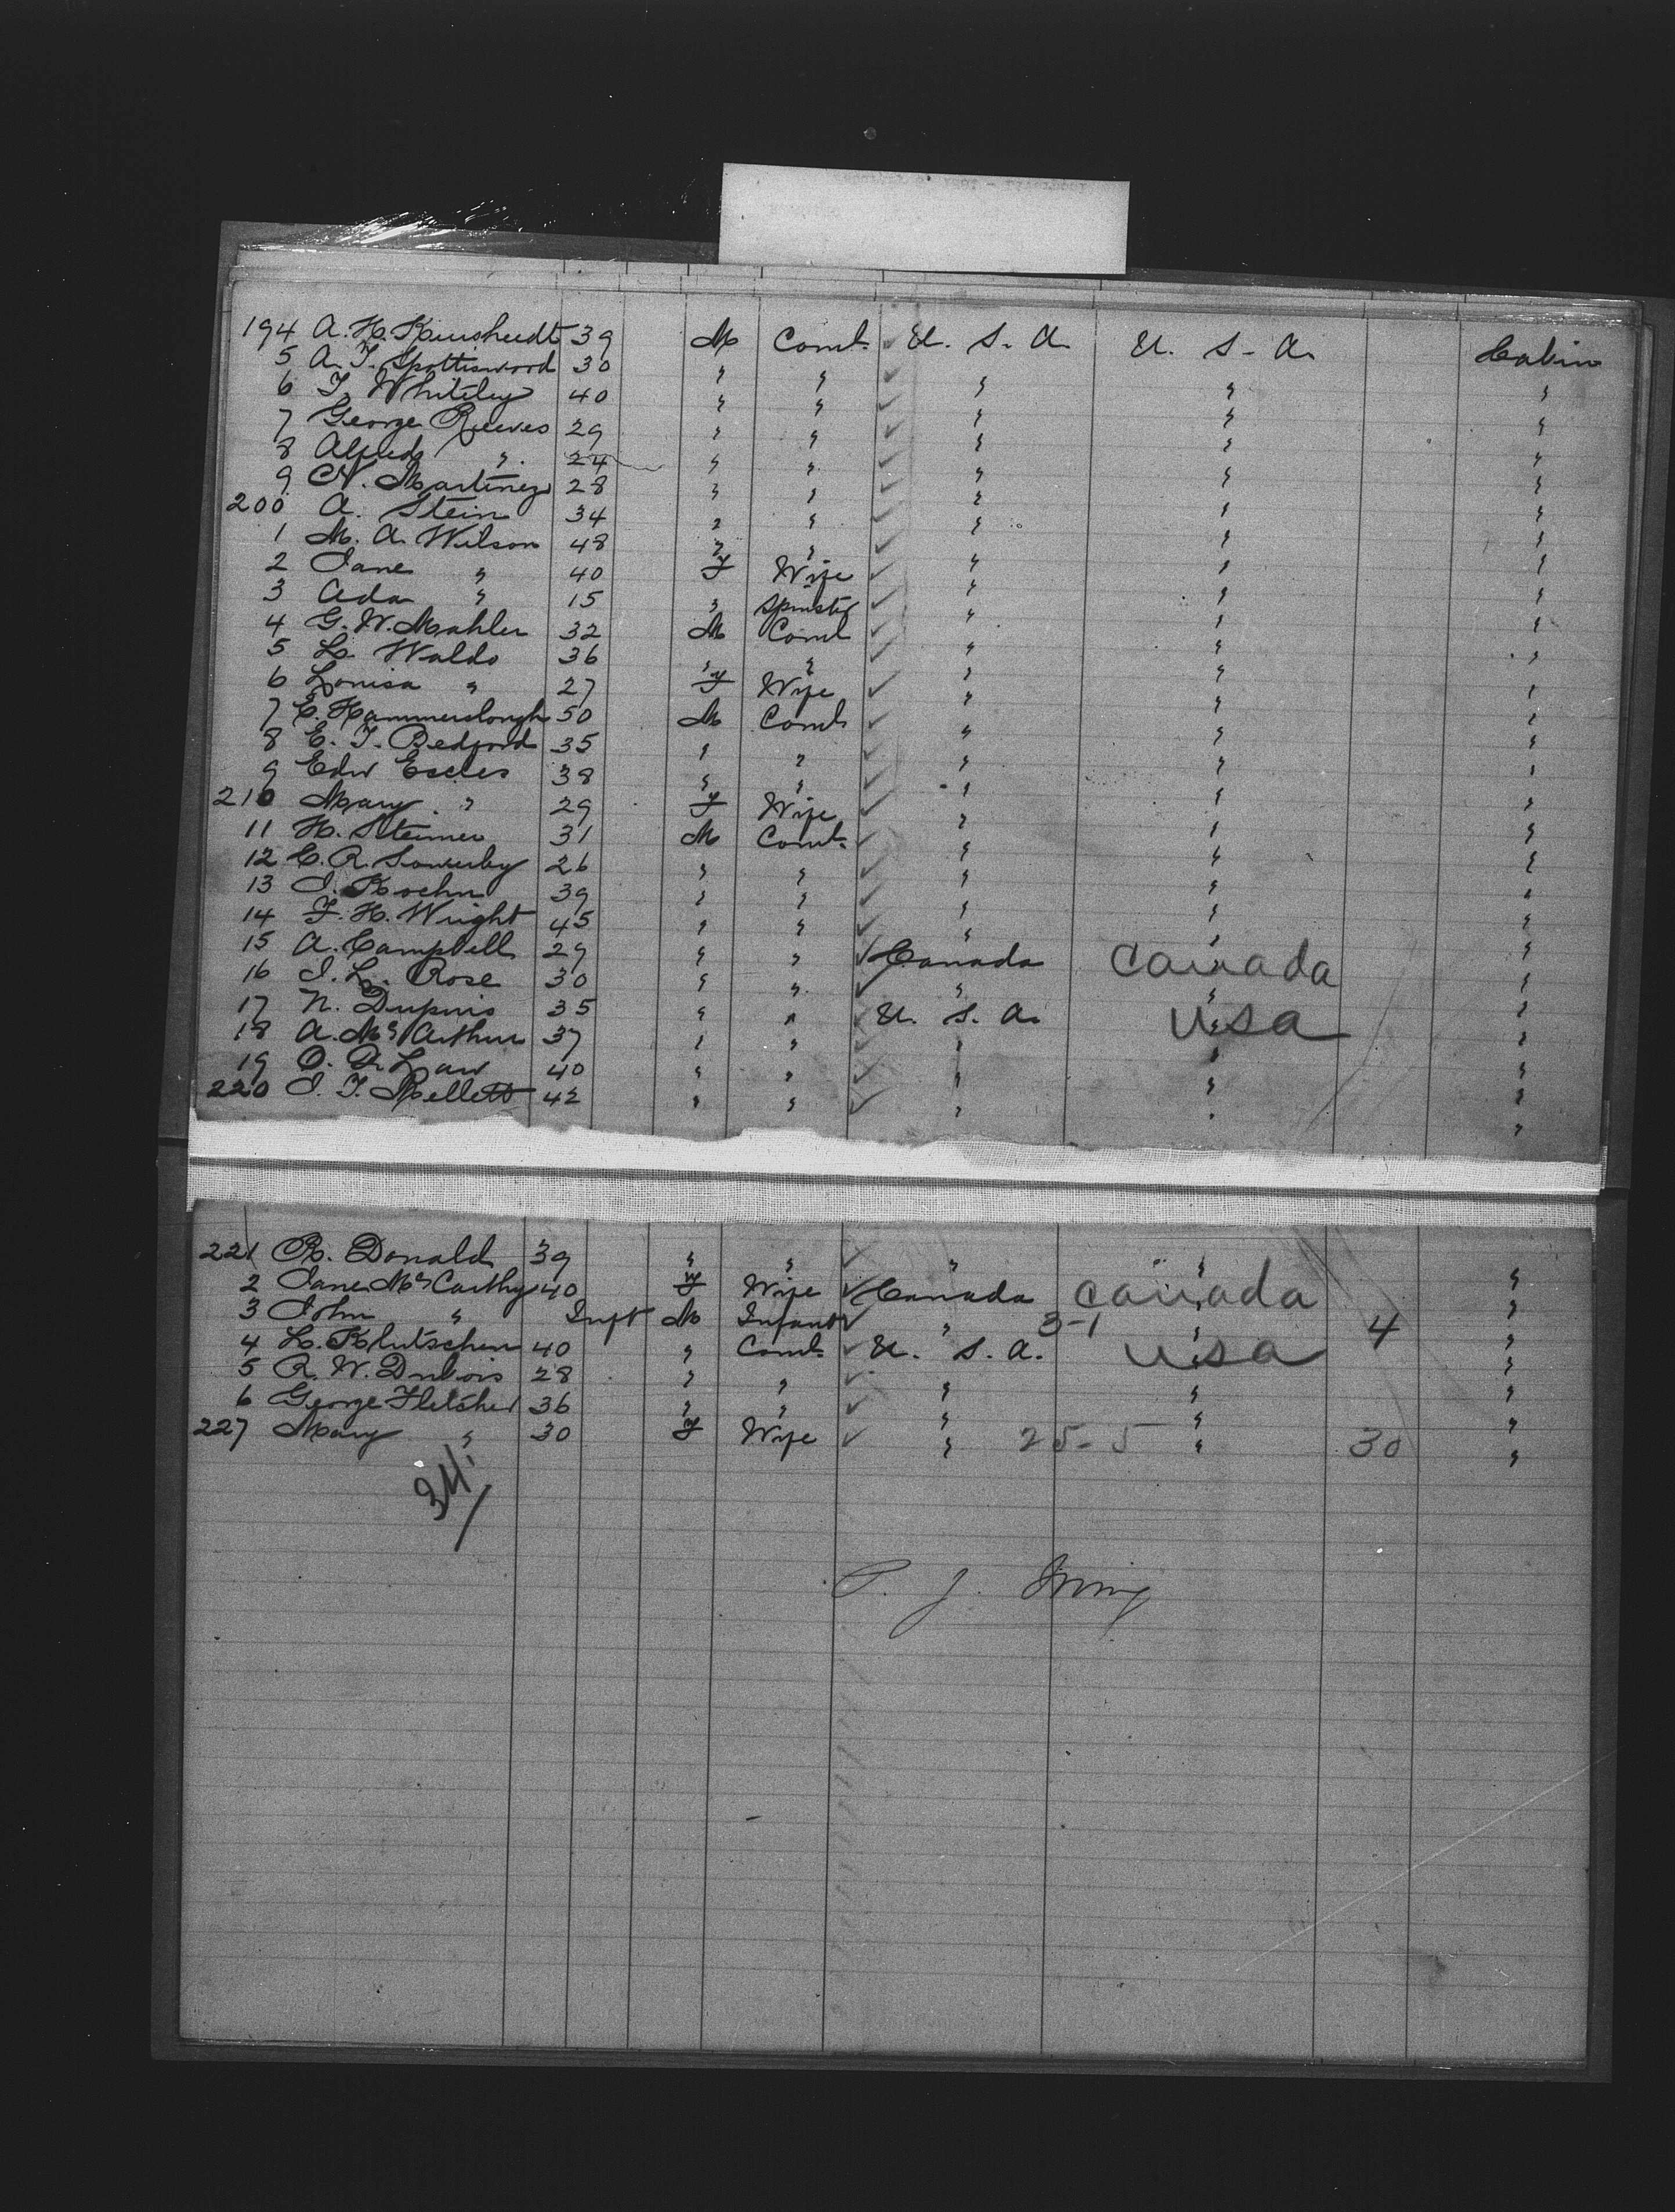 194 A. H. Kursheedt 39 M Coml. ✓ U. S. A. U. S. A. Cabin
5 A. T. Spottiswood 30 " " ✓ " " "
6 T. Whiteley 40 " " ✓ " " "
7 George Reeves 29 " " ✓ " " "
8 Alfred " 24 " " ✓ " " "
9 N. Martinez 28 " " ✓ " " "
200 A. Stein 34 " " ✓ " " "
1 M. A. Wilson 48 " " ✓ " " "
2 Jane " 40 F Wife ✓ " " "
3 Ada " 15 " Spinster ✓ " " "
4 G. W. Mahler 32 M Coml ✓ " " "
5 L. Waldo 36 " " ✓ " " "
6 Louisa " 27 F Wife ✓ " " "
7 E. Hammerslough 50 M Coml. ✓ " " "
8 E. T. Bedford 35 " " ✓ " " "
9 Edw Eccles 38 " " ✓ " " "
210 Mary " 29 F Wife ✓ " " "
11 H. Steiner 31 M Coml. ✓ " " "
12 C. R. Sowerby 26 " " ✓ " " "
13 J. Koehn 39 " " ✓ " " "
14 F. H. Wright 45 " " ✓ " " "
15 A. Campbell 29 " " ✓ Canada Canada "
16 J. L. Rose 30 " " ✓ " " "
17 N. Dupuis 35 " " ✓ U. S. A. USA "
18 A. McArthur 37 " " ✓ " " "
19 O. D. Law 40 " " ✓ " " "
220 J. T. Mellett 42 " " ✓ " " "
221 R. Donald 39 " " ✓ " " "
2 Jane McCarthy 40 F Wife ✓ Canada Canada "
3 John " Inft M Infant ✓ " 3-1 " 4 "
4 L. Klutschen 40 " Coml. ✓ U. S. A. USA "
5 R. W. Dubois 28 " " ✓ " " "
6 George Fletcher 36 " " ✓ " " "
227 Mary " 30 F Wife ✓ " 25-5 " 30 "
34/
P. J. Irving